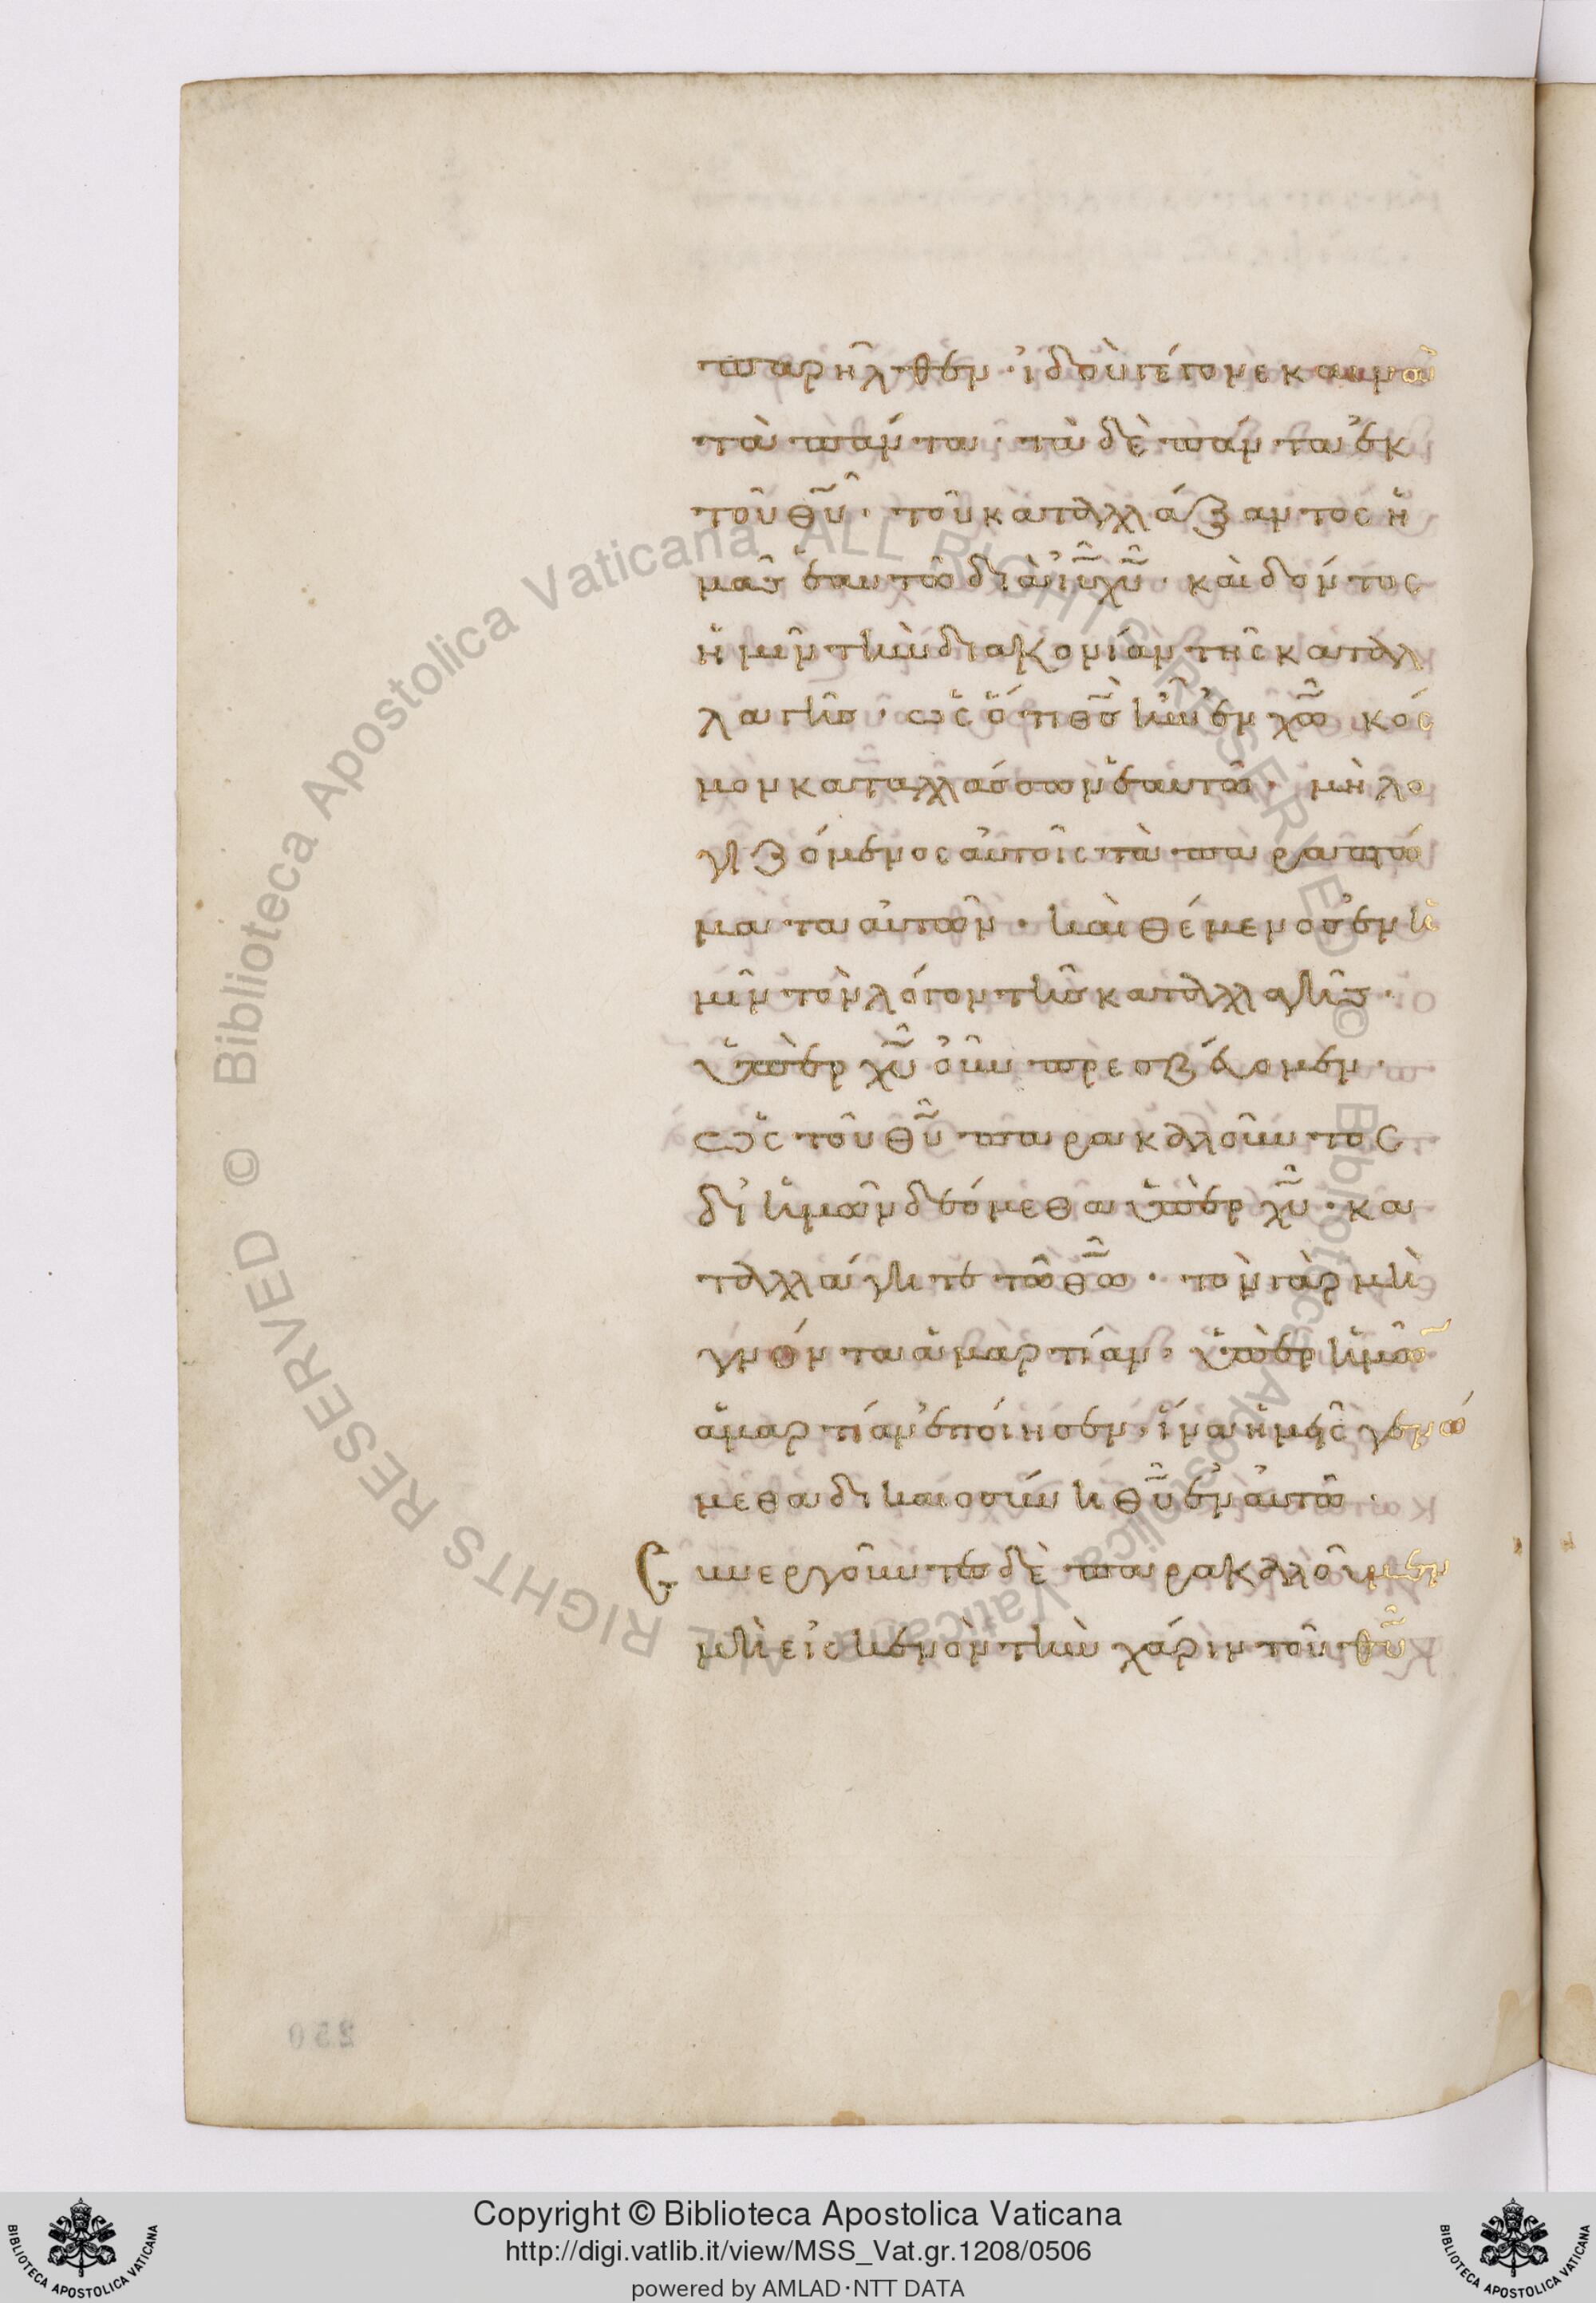 παρῆλθεν· ἰδοὺ γέγονε καινὰ
τὰ πάντα· τὰ δὲ πάντα ἐκ
τοῦ θ̅υ̅· τοῦ καταλλάξαντος ἡ
μᾶς ἑαυτῶ διὰ ι̅υ̅ χ̅υ̅· καὶ δόντος
ἡμῖν τὴν διακονίαν τῆς καταλ
λαγῆς· ὡς ὅτι θ̅ς̅ ἦν ἐν χ̅ω̅ κόσ
μον καταλλάσσων ἑαυτῶ· μὴ λο
γιζόμενος αὐτοῖς τὰ παραπτώ
ματα αὐτῶν· καὶ θέμενος ἐν ἡ
μῖν τὸν λόγον τῆς καταλλαγῆς·
ὑπὲρ χ̅υ̅ οὖν πρεσβεύομεν·
ὡς τοῦ θ̅υ̅ παρακαλοῦντος
δι ἡμῶν δεόμεθα ὑπὲρ χ̅υ̅· κα
ταλλάγητε τῶ θ̅ω̅· τὸν γὰρ μὴ
γνόντα ἁμαρτίαν· ὑπὲρ ἡμῶν
ἁμαρτίαν ἐποίησεν· ἵνα ἡμεῖς γενώ
μεθα δικαιοσύνη θ̅υ̅ ἐν αὐτῶ·
Συνεργοῦντες δὲ παρακαλοῦμεν
μὴ εἰς κενὸν τὴν χάριν τοῦ θ̅υ̅
250
Copyright © Biblioteca Apostolica Vaticana
http://digi.vatlib.it/view/MSS_Vat.gr.1208/0506
powered by AMLAD·NTT DATA
BIBLIOTECA APOSTOLICA VATICANA
BIBLIOTECA APOSTOLICA VATICANA
© Biblioteca Apostolica Vaticana ALL RIGHTS RESERVED © Biblioteca Apostolica Vaticana ALL RIGHTS RESERVED